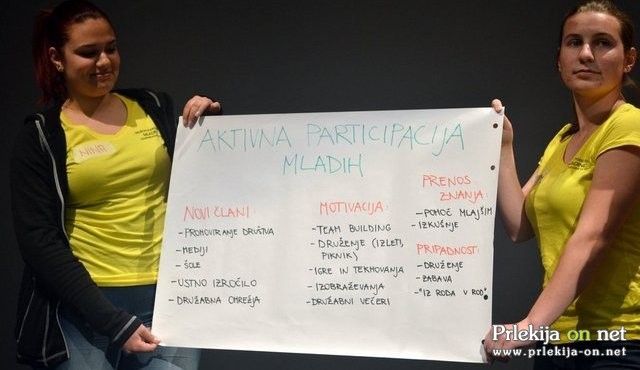 AKTIVNA PARTICIPACIJA
MLADIH
NOVI ČLANI:
- PROMOVIRANJE DRUŠTVA
- MEDIJI
- ŠOLE
- USTNO IZROČILO
- DRUŽABNA OMREŽJA
MOTIVACIJA:
- TEAM BUILDING
- DRUŽENJE (IZLETI,
PIKNIK)
- IGRE IN TEKMOVANJA
- IZOBRAŽEVANJA
- DRUŽABNI VEČERI
PRENOS
ZNANJA:
- POMOČ MLAJŠIM
- IZKUŠNJE
PRIPADNOST:
- DRUŽENJE
- ZABAVA
- "IZ RODA V ROD"
NINA
Prlekija on net
www.prlekija-on.net